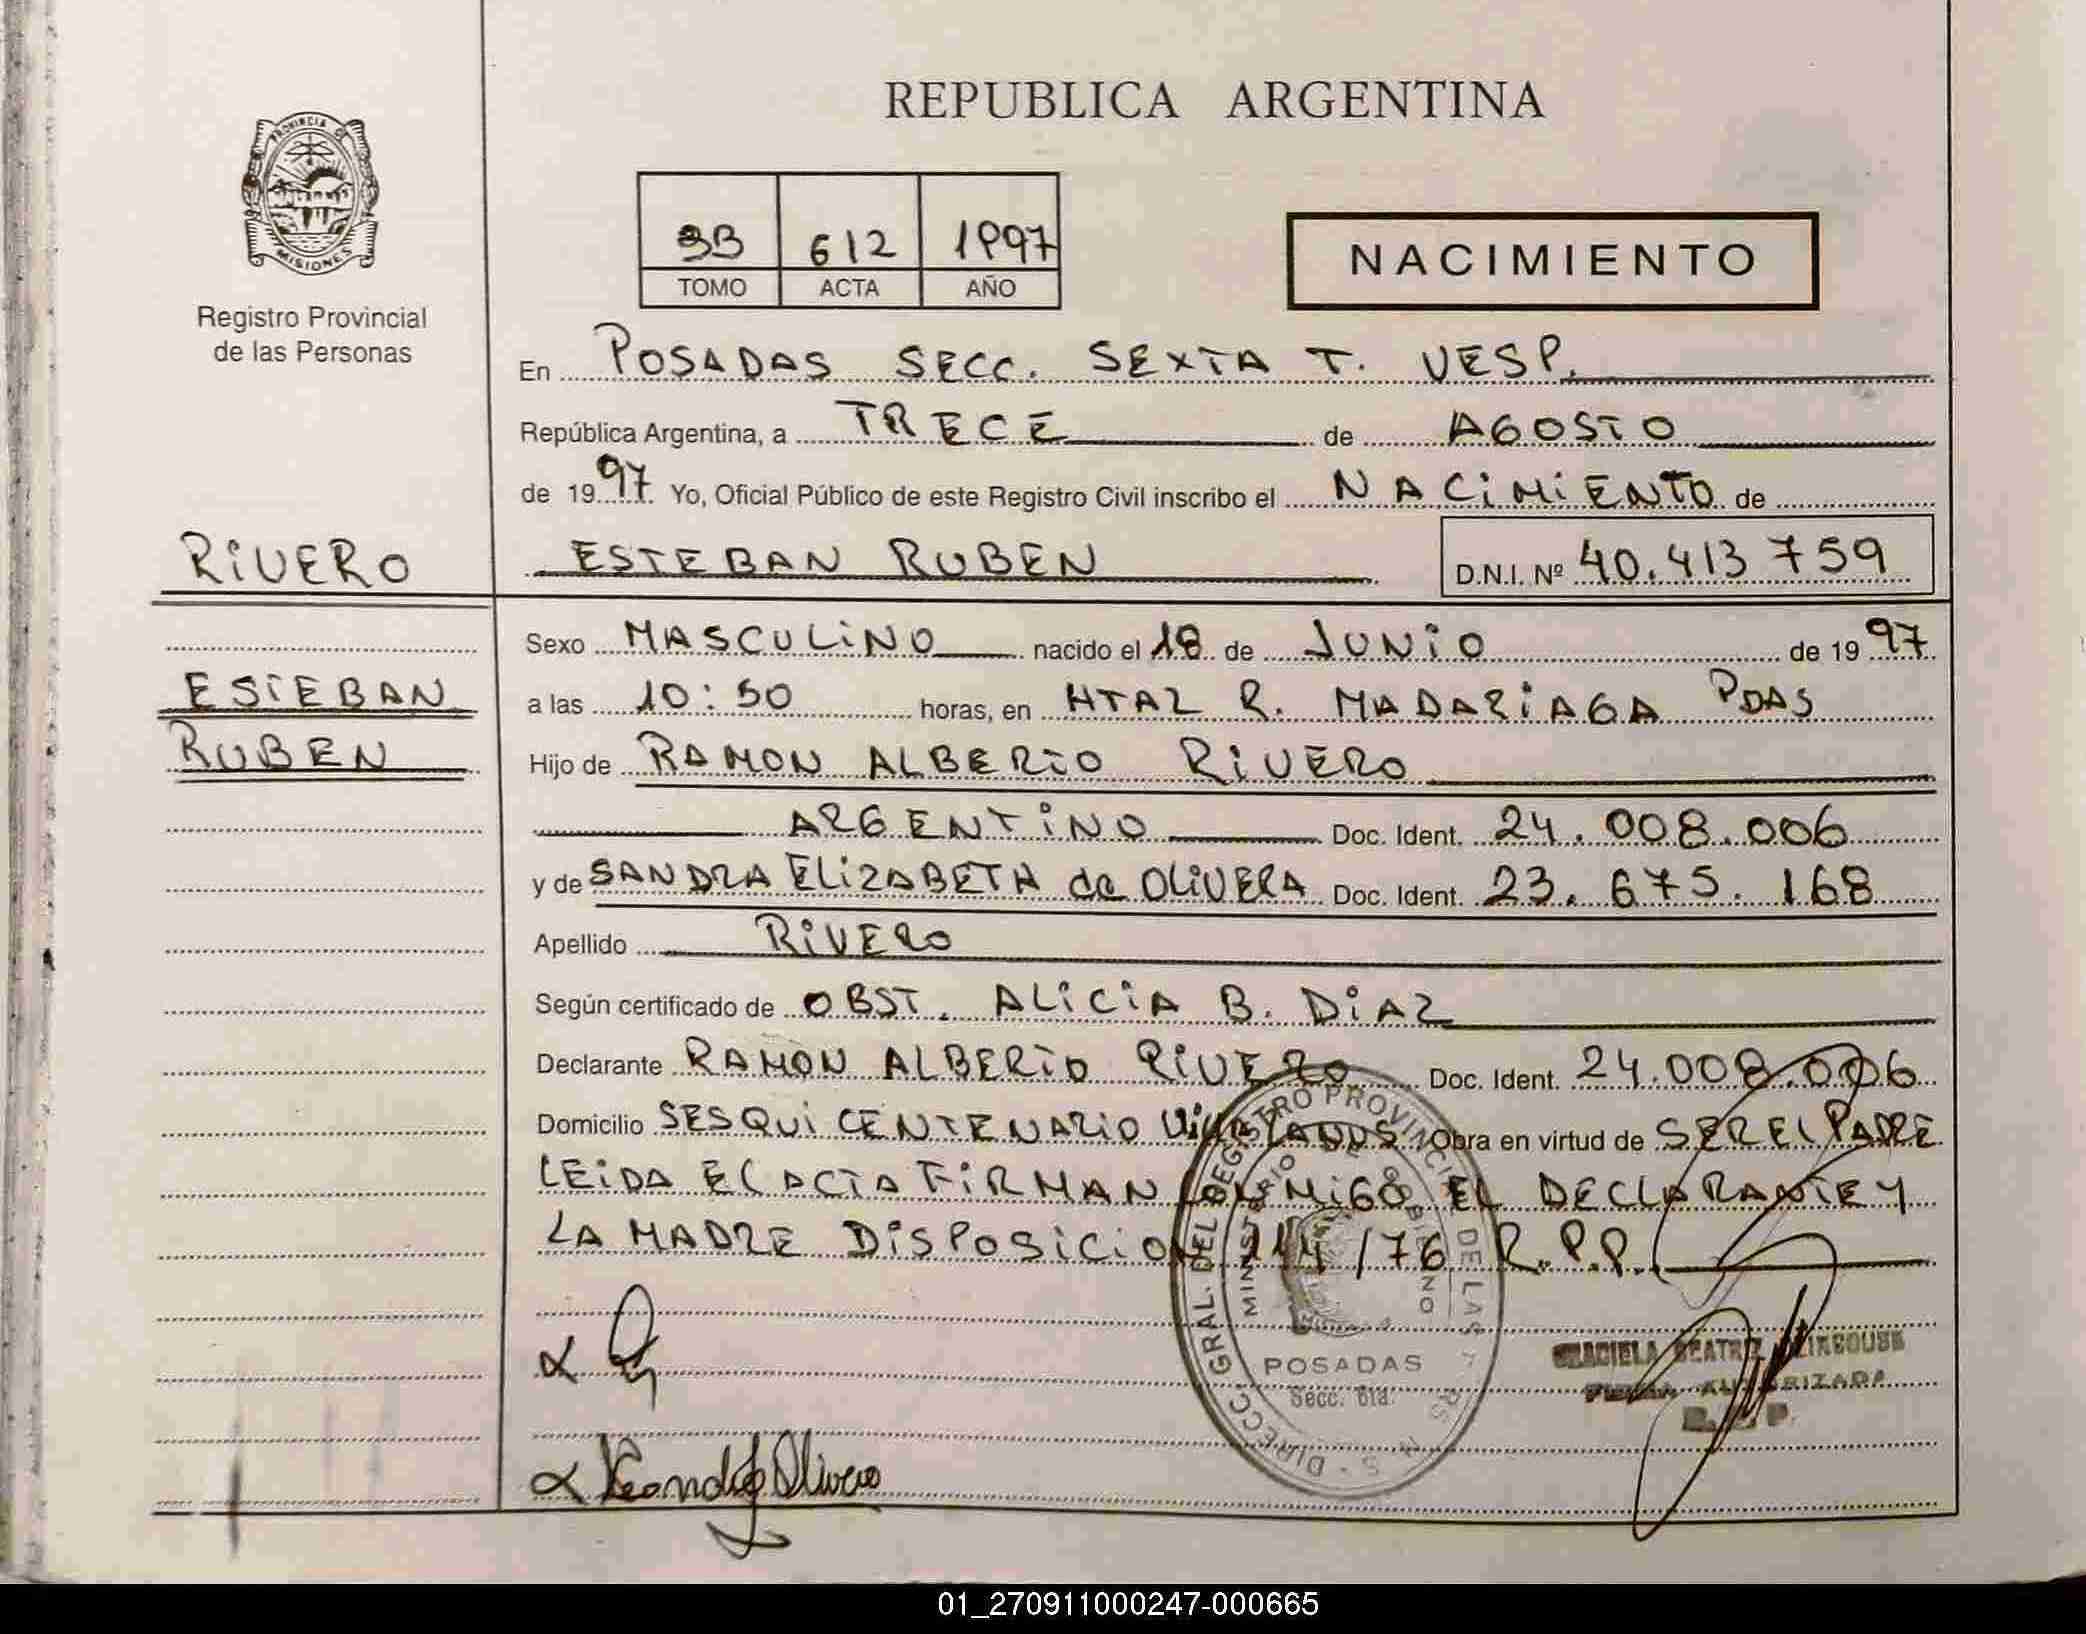 REPUBLICA ARGENTINA
PROVINCIA DE
MISIONES
Registro Provincial
de las Personas
3B 612 1997
TOMO ACTA AÑO
NACIMIENTO
En POSADAS SECC. SEXTA T. VESP.
República Argentina, a TRECE de AGOSTO
de 1997 Yo, Oficial Público de este Registro Civil inscribo el NACIMIENTO de
RIVERO
ESTEBAN RUBEN D.N.I. Nº 40.413 759
Sexo MASCULINO nacido el 18 de JUNIO de 1997
ESTEBAN
a las 10:50 horas, en HTAL R. MADARIAGA PDAS
RUBEN
Hijo de RAMON ALBERTO RIVERO
ARGENTINO Doc. Ident. 24.008.006
y de SANDRA ELIZABETH de OLIVERA Doc. Ident. 23.675.168
Apellido RIVERO
Según certificado de OBST. ALICIA B. DIAZ
Declarante RAMON ALBERTO RIVERO Doc. Ident. 24.008.006
Domicilio SESQUICENTENARIO Obra en virtud de SER EL PADRE
LEIDA EL ACTA FIRMAN CONMIGO EL DECLARANTE Y
LA MADRE DISPOSICION /76 R.P.P.
DIRECC. GRAL. DEL REGISTRO PROVINCIAL DE LAS
MINISTERIO DE GOBIERNO
POSADAS
Secc. 6ta.
GRACIELA BEATRIZ
FIRMA AUTORIZADA
R.P.P.
01_270911000247-000665